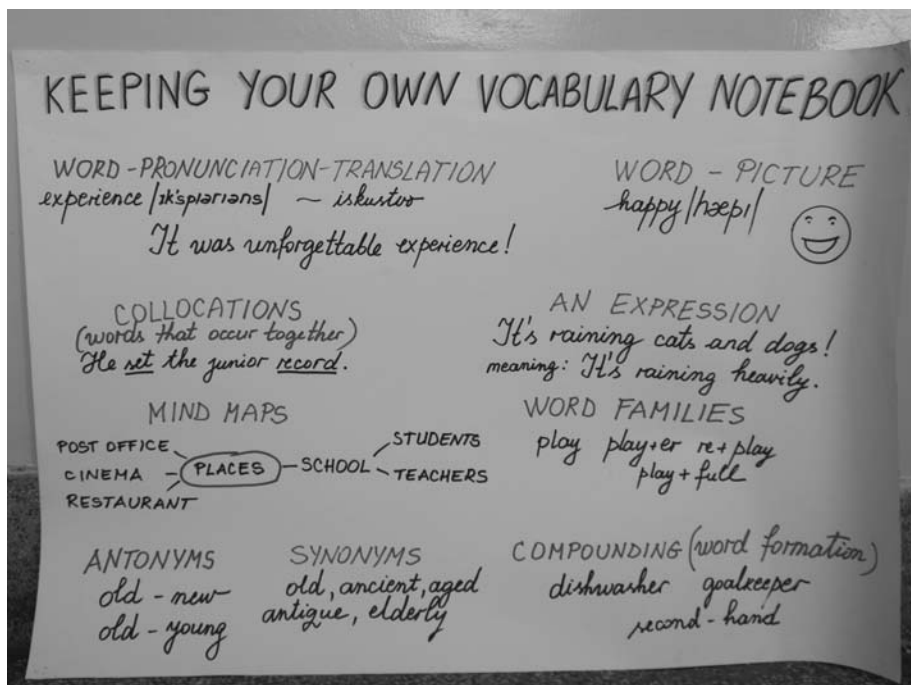 KEEPING YOUR OWN VOCABULARY NOTEBOOK
WORD - PRONUNCIATION - TRANSLATION
experience /ɪk'spɪərɪəns/ ~ iskustvo
It was unforgettable experience!
WORD - PICTURE
happy /hæpɪ/
COLLOCATIONS
(words that occur together)
He set the junior record.
AN EXPRESSION
It's raining cats and dogs!
meaning: It's raining heavily.
MIND MAPS
POST OFFICE
CINEMA
RESTAURANT
PLACES
SCHOOL
STUDENTS
TEACHERS
WORD FAMILIES
play play+er re+play
play + full
ANTONYMS
old - new
old - young
SYNONYMS
old, ancient, aged
antique, elderly
COMPOUNDING (word formation)
dishwasher goalkeeper
second - hand